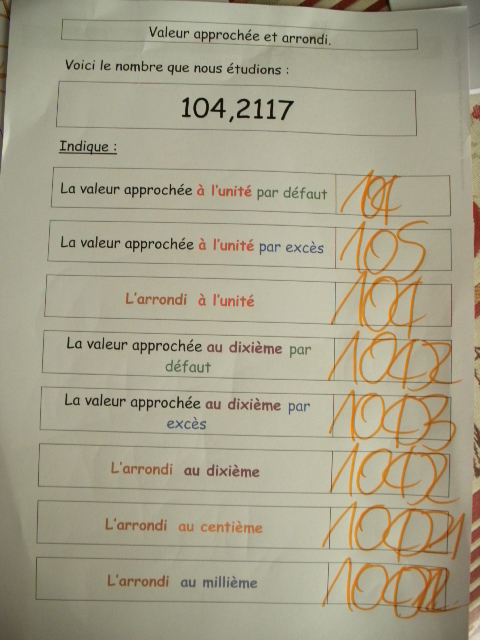 Valeur approchée et arrondi.
Voici le nombre que nous étudions :
104,2117
Indique :
La valeur approchée à l'unité par défaut 104
La valeur approchée à l'unité par excès 105
L'arrondi à l'unité 104
La valeur approchée au dixième par
défaut
La valeur approchée au dixième par
excès
L'arrondi au dixième
L'arrondi au centième
L'arrondi au millième